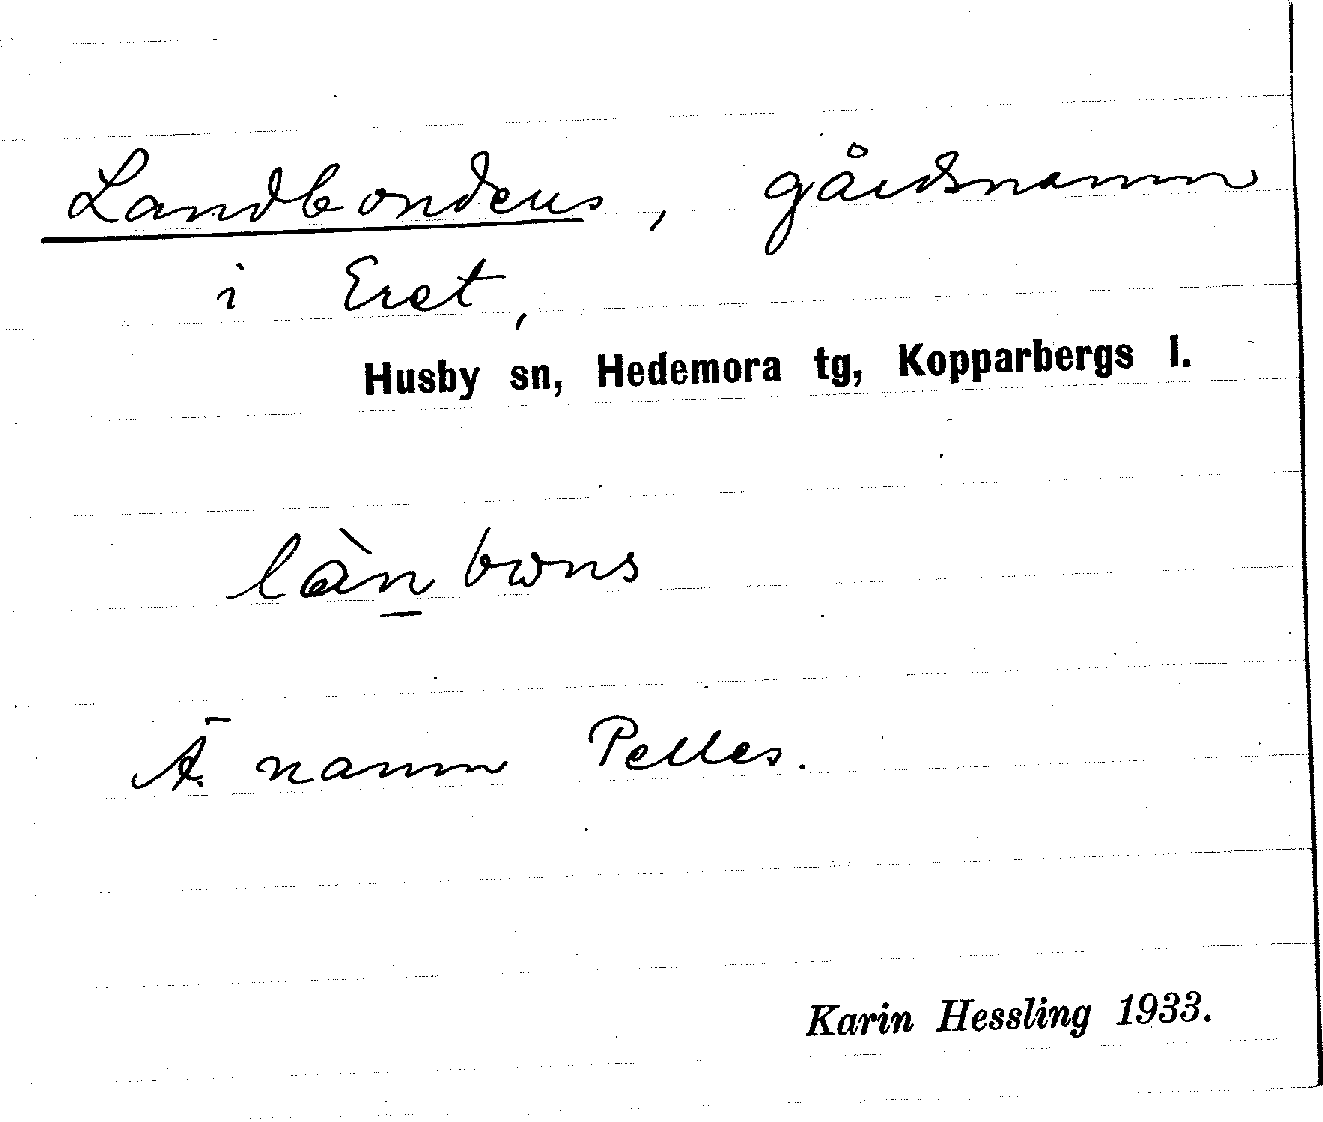 Landbondens, gårdsnamn
i Eret,
Husby sn, Hedemora tg, Kopparbergs l.
làn̲bωns
Ä. namn Pelles.
Karin Hessling 1933.